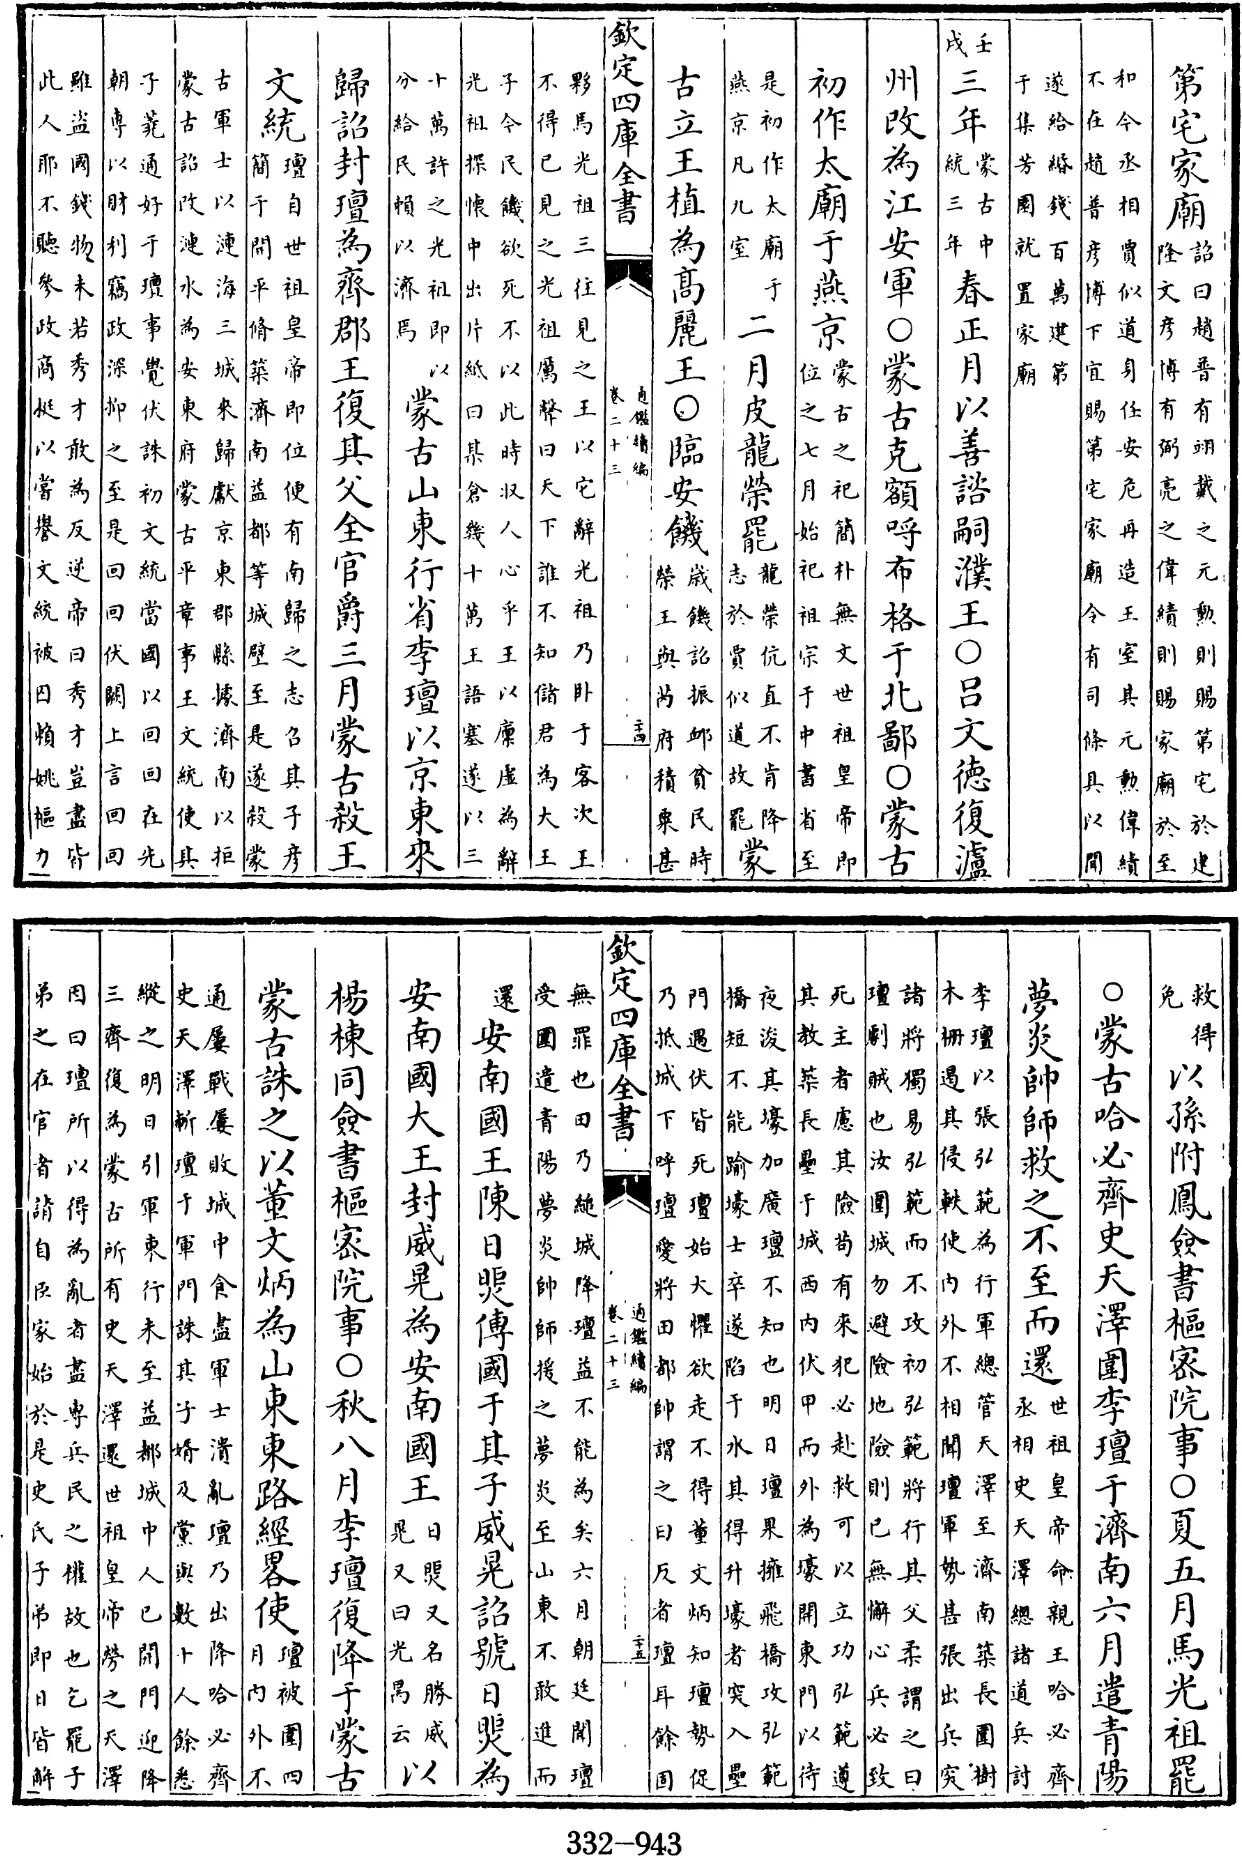 第宅家廟詔曰趙普有翊戴之元勲則賜第宅於建隆文彦博有弼亮之偉績則賜家廟於至
和今丞相賈似道身任安危再造王室其元勲偉績
不在趙普彦博下宜賜第宅家廟令有司條具以聞
遂給緡錢百萬建第
于集芳園就置家廟
壬戌三年蒙古中統三年春正月以善諮嗣濮王○呂文德復瀘
州改為江安軍○蒙古克額呼布格于北鄙○蒙古
初作太廟于燕京蒙古之祀簡朴無文世祖皇帝即位之七月始祀祖宗于中書省至
是初作太廟于燕京凡八室二月皮龍榮罷龍榮伉直不肯降志於賈似道故罷蒙
古立王植為高麗王○臨安饑歲饑詔振邺貧民時榮王與芮府積粟甚
欽定四庫全書
通鑑續編
卷二十三
二十四
夥馬光祖三往見之王以它辭光祖乃卧于客次王
不得已見之光祖厲聲曰天下誰不知儲君為大王
子今民饑欲死不以此時収人心乎王以廩虛為辭
光祖探懷中出片紙曰某倉幾十萬王語塞遂以三
十萬許之光祖即以分給民賴以濟焉蒙古山東行省李璮以京東來
歸詔封璮為齊郡王復其父全官爵三月蒙古殺王
文統璮自世祖皇帝即位便有南歸之志召其子彦簡于開平脩築濟南益都等城壁至是遂殺蒙
古軍士以漣海三城來歸獻京東郡縣據濟南以拒
蒙古詔改漣水為安東府蒙古平章事王文統使其
子蕘通好于璮事覺伏誅初文統當國以回回在先
朝專以財利竊政深抑之至是回回伏闕上言回回
雖盜國錢物未若秀才敢為反逆帝曰秀才豈盡皆
此人耶不聽參政商挺以嘗譽文統被囚頼姚樞力
救得免以孫附鳳僉書樞密院事○夏五月馬光祖罷
○蒙古哈必齊史天澤圍李璮于濟南六月遣青陽
夢炎帥師救之不至而還世祖皇帝命親王哈必齊丞相史天澤總諸道兵討
李璮以張弘範為行軍總管天澤至濟南築長圍樹
木柵遏其侵軼使內外不相聞璮軍勢甚張出兵突
諸將獨易弘範而不攻初弘範將行其父柔謂之曰
璮劇賊也汝圍城勿避險地險則已無懈心兵必致
死主者慮其險苟有來犯必赴救可以立功弘範遵
其教築長壘于城西內伏甲而外為壕開東門以待
夜浚其壕加廣璮不知也明日璮果擁飛橋攻弘範
橋短不能踰壕士卒遂陷于水其得升壕者突入壘
門遇伏皆死璮始大懼欲走不得董文炳知璮勢促
乃抵城下呼璮愛將田都帥謂之曰反者璮耳餘固
欽定四庫全書
通鑑續編
卷二十三
二十五
無罪也田乃縋城降璮益不能為矣六月朝廷聞璮
受圍遣青陽夢炎帥師援之夢炎至山東不敢進而
還安南國王陳日煚傳國于其子威晃詔號日煚為
安南國大王封威晃為安南國王日煚又名勝威晃又曰光昺云以
楊棟同僉書樞密院事○秋八月李璮復降于蒙古
蒙古誅之以董文炳為山東東路經畧使璮被圍四月內外不
通屢戰屢敗城中食盡軍士潰亂璮乃出降哈必齊
史天澤斬璮于軍門誅其子婿及黨與數十人餘悉
縱之明日引軍東行未至益都城中人已開門迎降
三齊復為蒙古所有史天澤還世祖皇帝勞之天澤
因曰璮所以得為亂者盡專兵民之權故也乞罷子
弟之在官者請自臣家始於是史氏子弟即日皆解
332-943